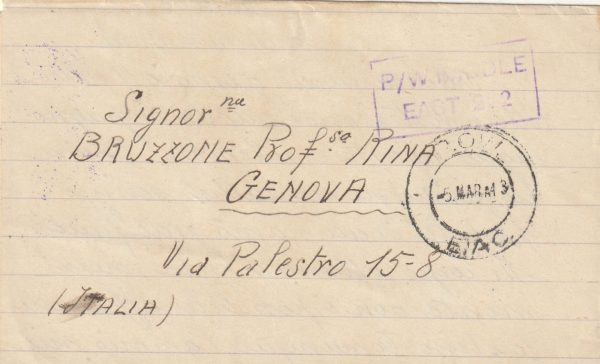 P/W MIDDLE
EAST 2
Signor na
BRUZZONE Prof.sa RINA
GENOVA
-5 MAR
E.A.C.
Via Palestro 15-8
(ITALIA)